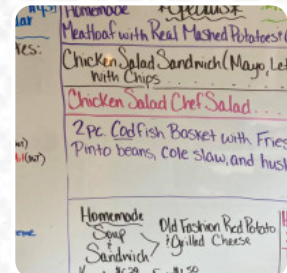 Homemade
Meatloaf with Real Mashed Potatoes
Chicken Salad Sandwich (Mayo, Let
with Chips . . . .
Chicken Salad Chef Salad . . . .
2pc. Codfish Basket with Fries
Pinto beans, Cole slaw, and hush
Homemade
Soup
&
Sandwich
Old Fashion Red Potato
& Grilled Cheese